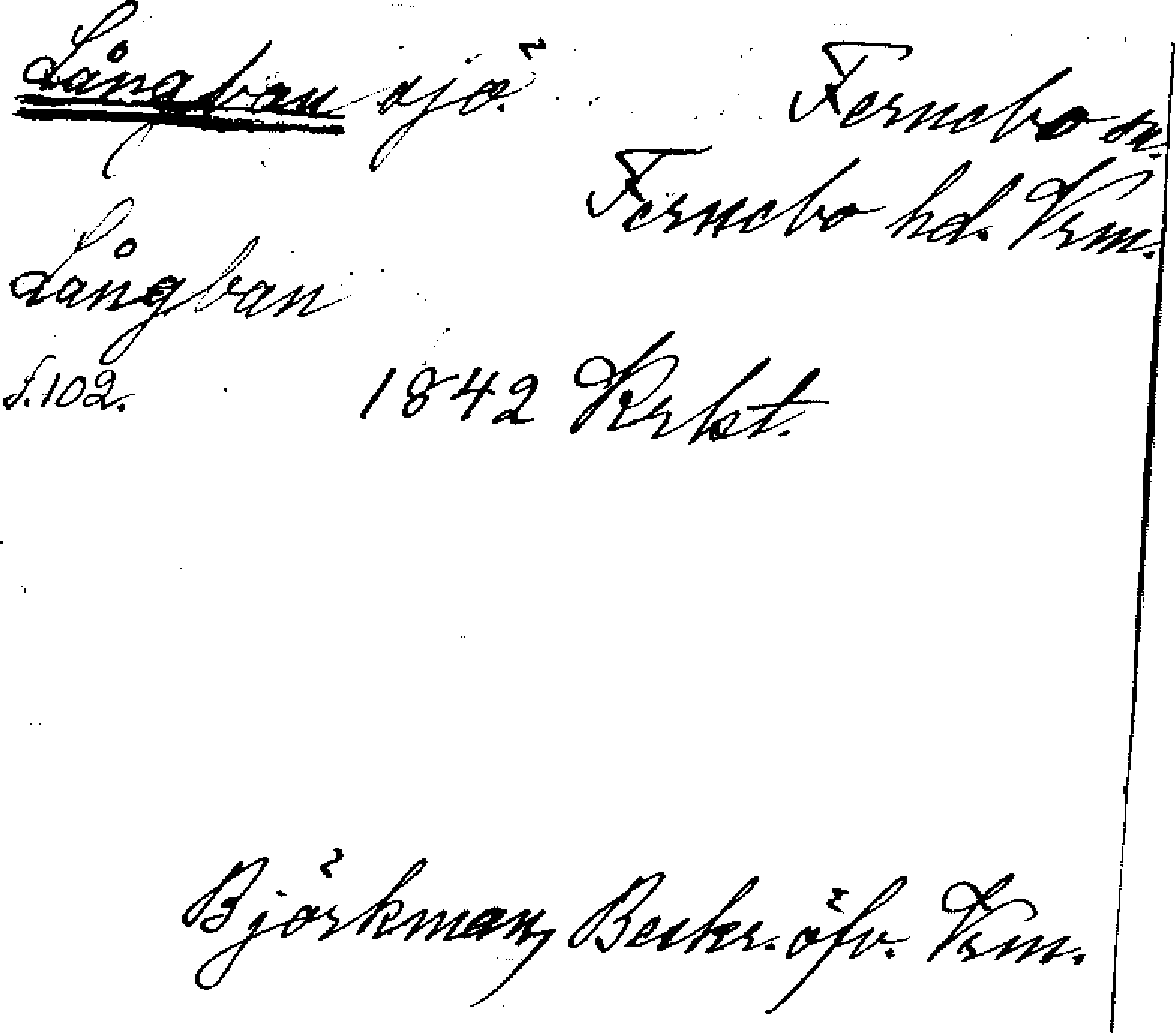 Långban sjö. Fernebo sn.
Fernebo hd. Vrm.
Långban
s. 102. 1842 Krkt.
Björkman, Beskr. öfv. Vrm.